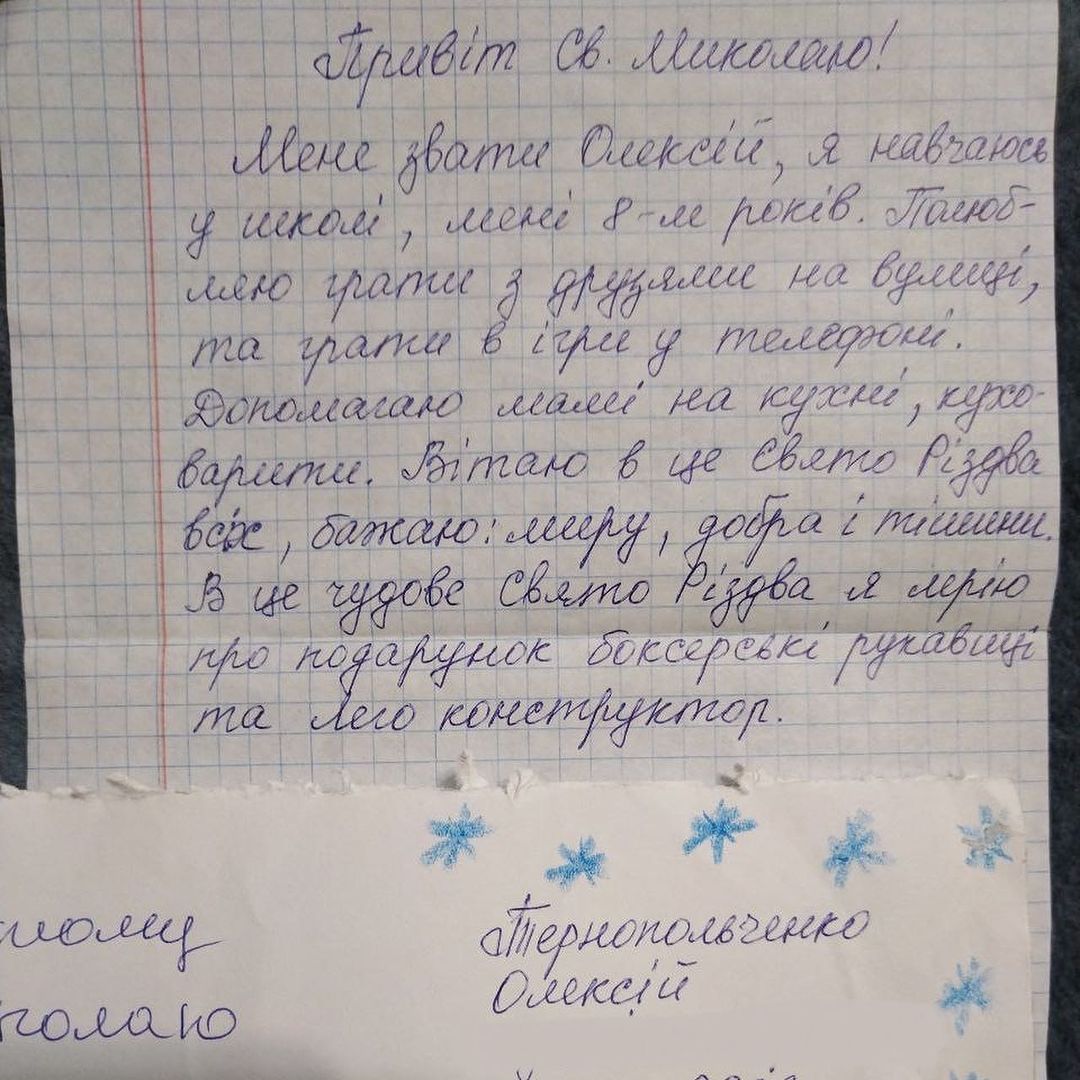 Привіт Св. Миколаю!
Мене звати Олексій, я навчаюсь
у школі, мені 8-м років. Полюб-
ляю грати з друзями на вулиці,
та грати в ігри у телефоні.
Допомагаю мамі на кухні, кухо-
варити. Вітаю в це Свято Різдва
всіх, бажаю: миру, добра і тишини.
В це чудове Свято Різдва я мрію
про подарунок боксерські рукавиці
та лего конструктор.
Тернопольченко
Олексій